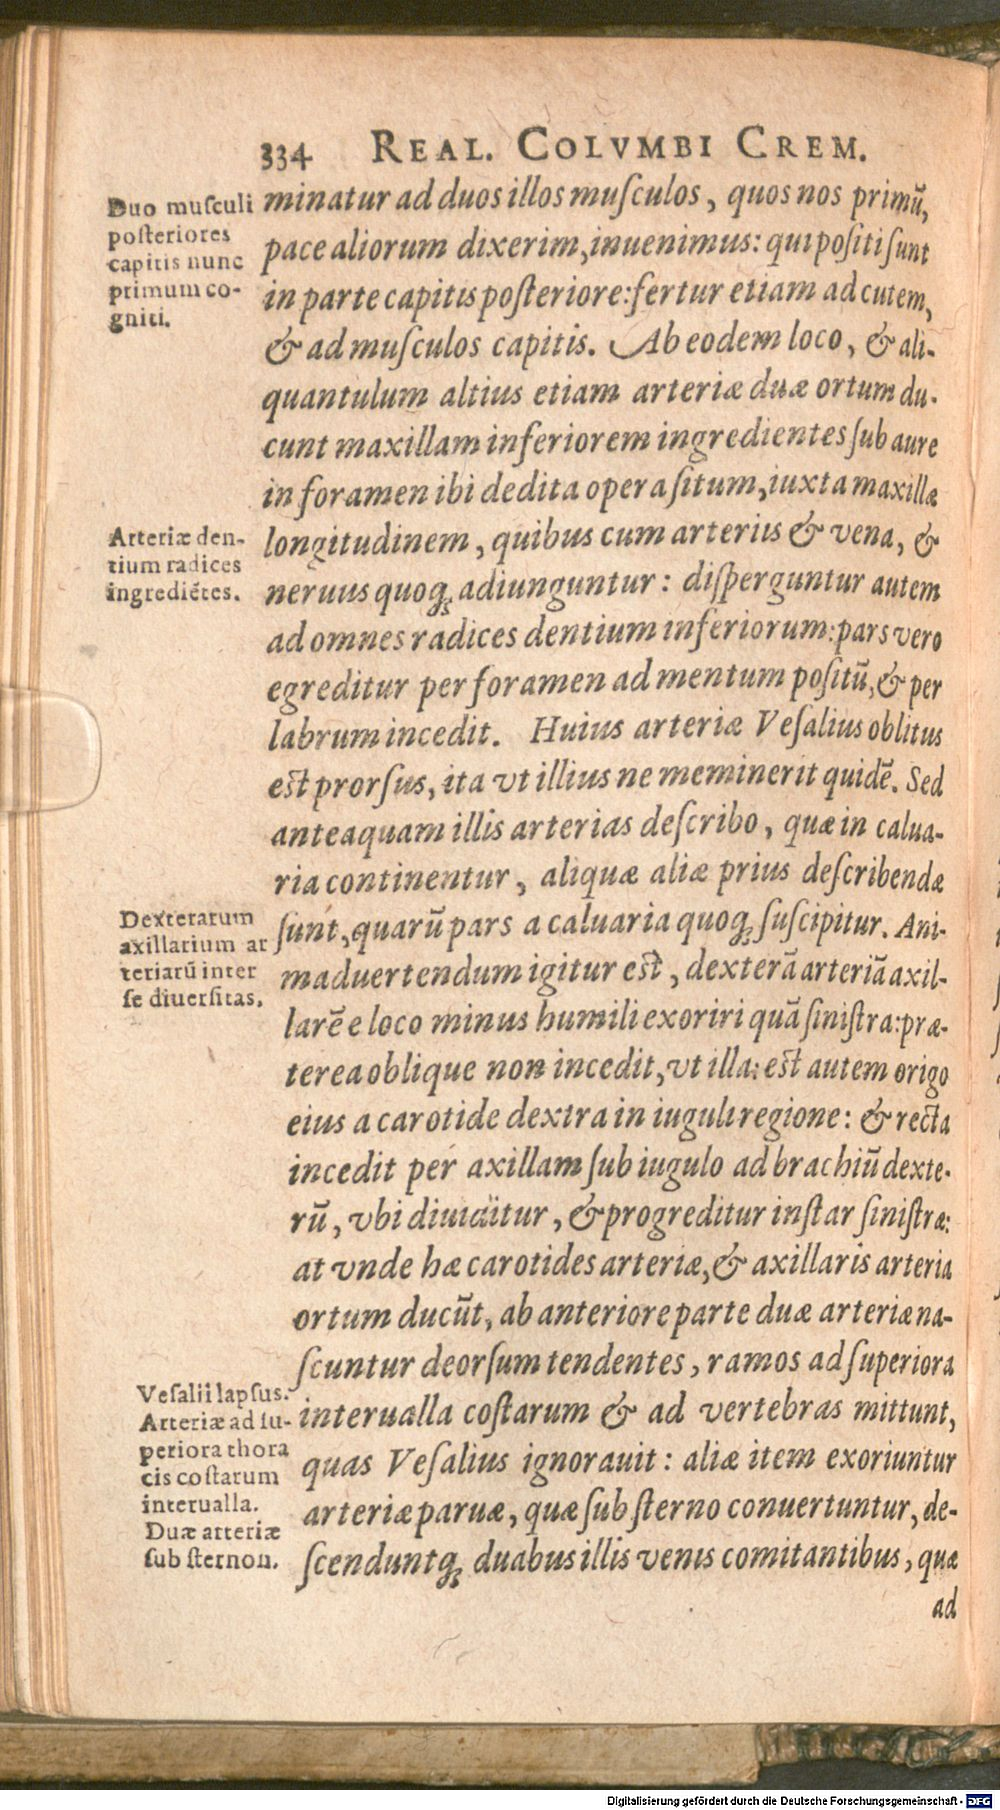 334 REAL. COLVMBI CREM.
Duo muſculi
poſteriores
capitis nunc
primum co-
gniti.
minatur ad duos illos muſculos, quos nos primũ,
pace aliorum dixerim, inuenimus: qui poſiti ſunt
in parte capitis poſteriore: fertur etiam ad cutem,
& ad muſculos capitis. Ab eodem loco, & ali-
quantulum altius etiam arteriæ duæ ortum du-
cunt maxillam inferiorem ingredientes ſub aure
in foramen ibi dedita opera ſitum, iuxta maxillæ
Arteriæ den-
tium radices
ingrediẽtes.
longitudinem, quibus cum arteriis & vena, &
neruus quoq; adiunguntur: diſperguntur autem
ad omnes radices dentium inferiorum: pars vero
egreditur per foramen ad mentum poſitũ, & per
labrum incedit. Huius arteriæ Veſalius oblitus
eſt prorſus, ita vt illius ne meminerit quidẽ. Sed
anteaquam illis arterias deſcribo, quæ in calua-
ria continentur, aliquæ aliæ prius deſcribendæ
Dexterarum
axillarium ar
teriarũ inter
ſe diuerſitas.
ſunt, quarũ pars a caluaria quoq; ſuſcipitur. Ani-
maduertendum igitur eſt, dexterã arteriã axil-
larẽ e loco minus humili exoriri quã ſiniſtra: præ-
terea oblique non incedit, vt illa: eſt autem origo
eius a carotide dextra in iuguli regione: & recta
incedit per axillam ſub iugulo ad brachiũ dexte-
rũ, vbi diuiditur, & progreditur inſtar ſiniſtræ:
at vnde hæ carotides arteriæ, & axillaris arteria
ortum ducũt, ab anteriore parte duæ arteriæ na-
ſcuntur deorſum tendentes, ramos ad ſuperiora
Veſalii lapſus.
Arteriæ ad ſu-
periora thora
cis coſtarum
interualla.
Duæ arteriæ
ſub ſternon.
interualla coſtarum & ad vertebras mittunt,
quas Veſalius ignorauit: aliæ item exoriuntur
arteriæ paruæ, quæ ſub ſterno conuertuntur, de-
ſcenduntq; duabus illis venis comitantibus, quæ
ad
Digitalisierung gefördert durch die Deutsche Forschungsgemeinschaft - DFG